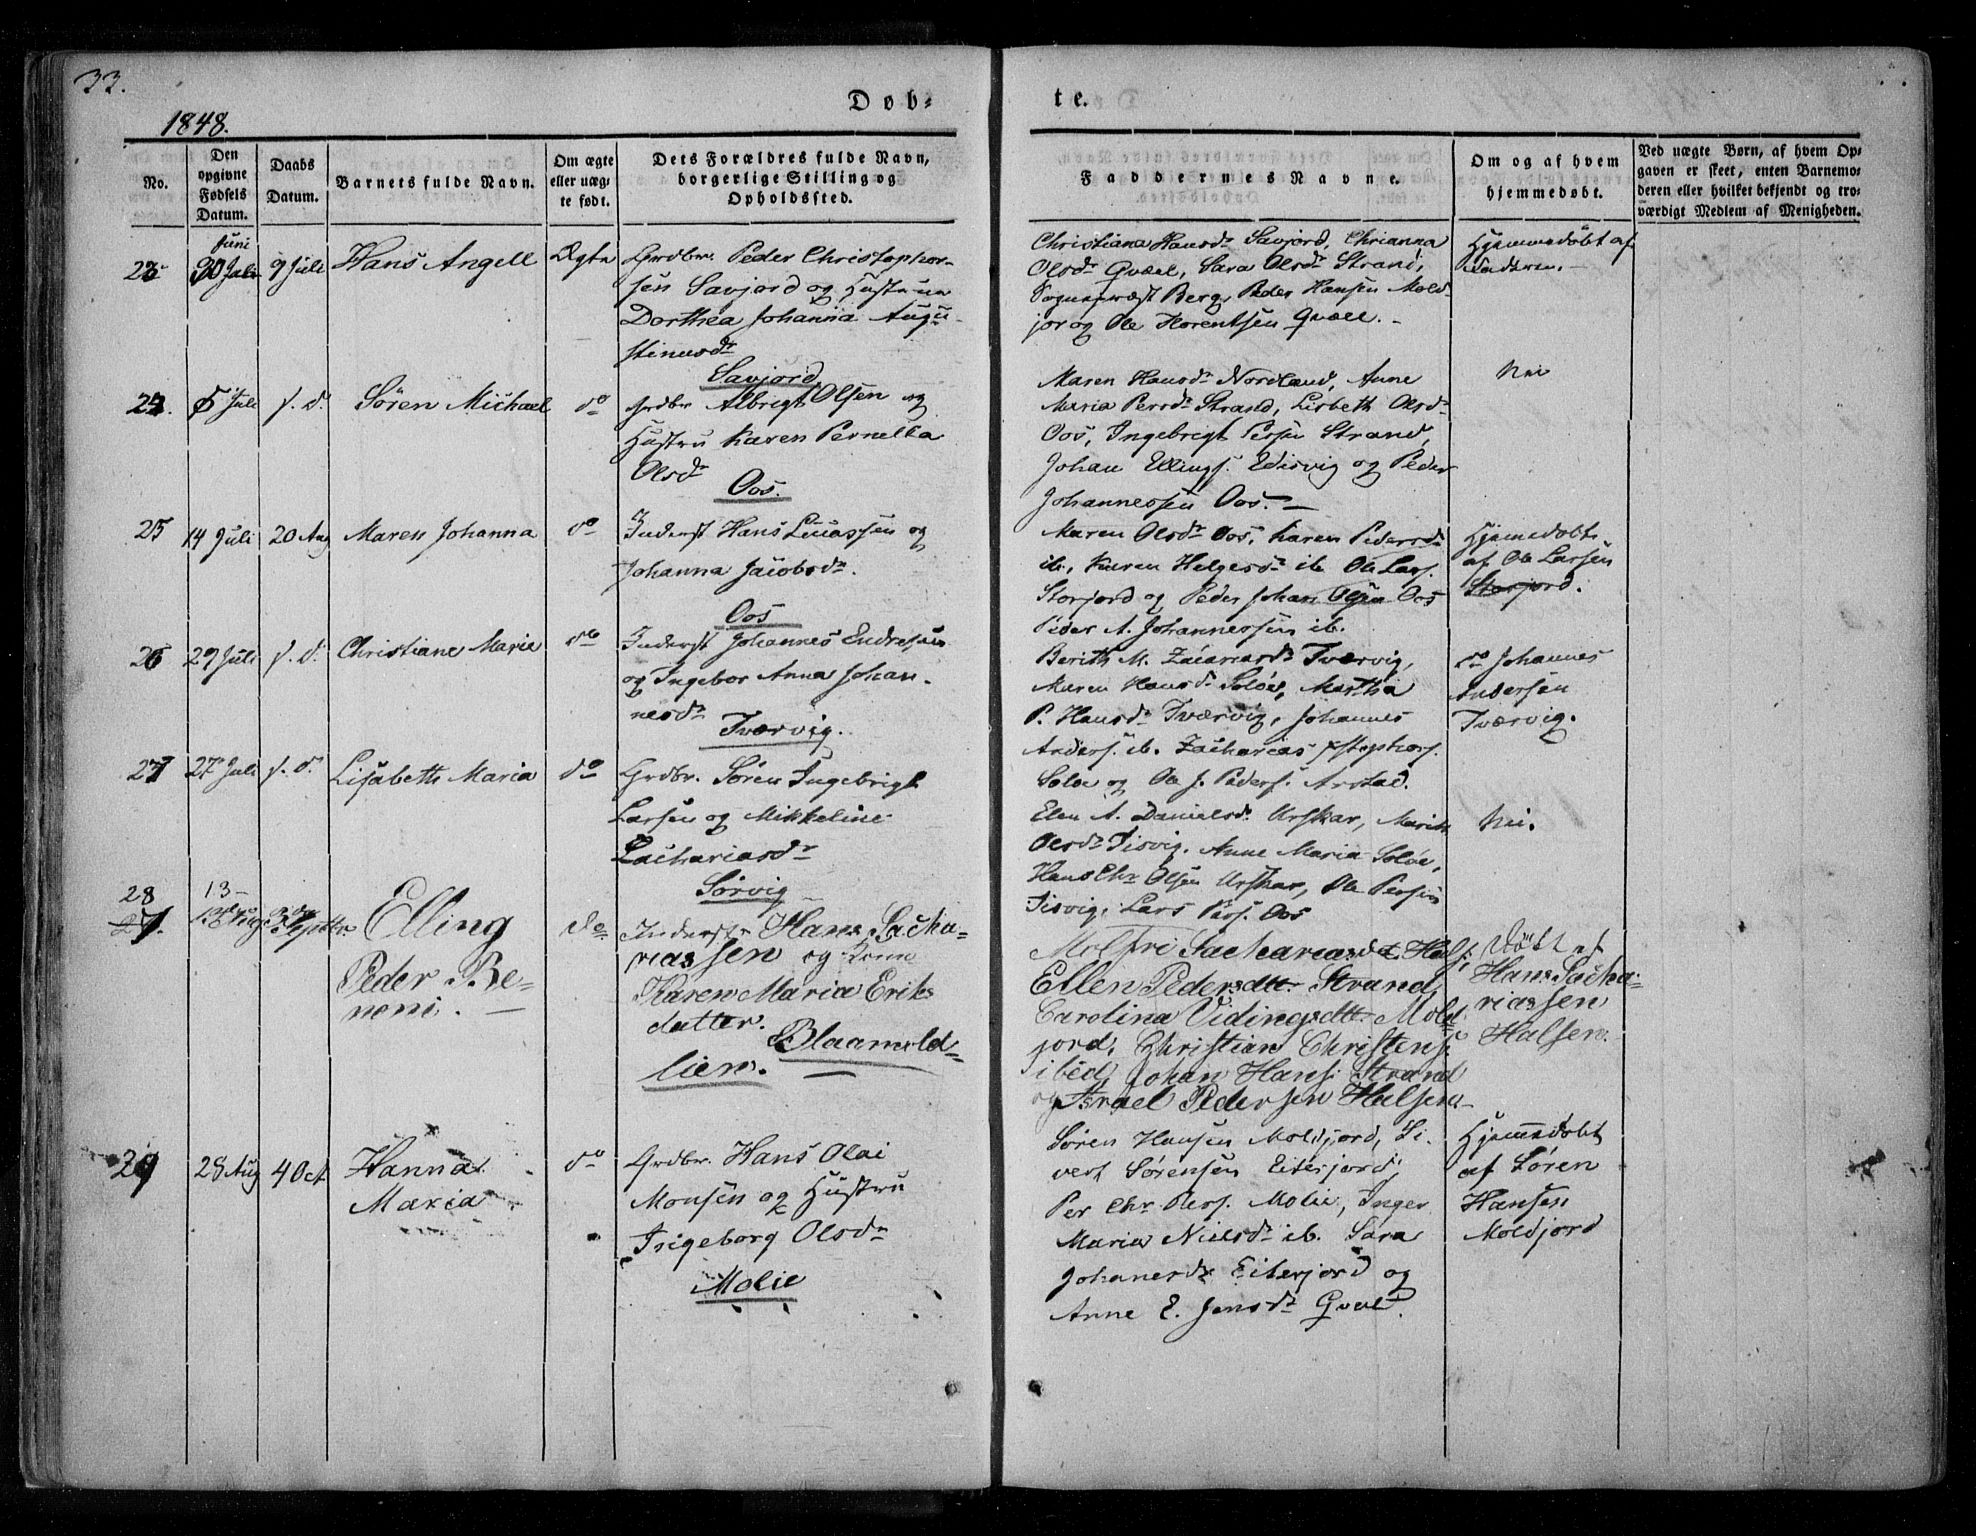 33.
1848.
Døb-
te.
No.
Den opgivne Fødsels Datum.
Daabs Datum.
Barnets fulde Navn.
Om ægte eller uægte født.
Dets Forældres fulde Navn, borgerlige Stilling og Opholdssted.
Faddernes Navne.
Om og af hvem hjemmedøbt.
Ved uægte Børn, af hvem Opgaven er skeet, enten Barnemoderen eller hvilket bekjendt og troværdigt Medlem af Menigheden.
23
Juni
30 Juli
9 Juli
Hans Angell
Ægte
Grdbr. Peder Christophor-
sen Savjord og Hustrue
Dorthea Johanna Augu-
stinusdr
Savjord
Christiana Hansdr Savjord, Chrianna
Olsdr Qvæel, Sara Olsdr Strand,
Sognepræst Berg, Peder Hansen Mold-
jor og Ole Horentsen Qvæel. -
Hjemmedøbt af
Faderen. -
24.
5 Juli
s. d.
Søren Michael
do
Grdbr Albrigt Olsen og
Hustru Karen Pernella
Olsdr
Oos.
Maren Hansdr Nordland, Anne
Maria Persdr Strand, Lisbeth Olsdr
Oos, Ingebrigt Persen Strand,
Johan Ellings. Edisvig og Peder
Johannessen Oos. -
Nei
25
14 Juli
20 Aug
Maren Johanna
do
Inderst Hans Lucassen og
Johanna Jacobsdr.
Oos
Maren Olsdr Oos, Karen Pedersdr
ib., Karen Helgesdr ib. Ole Lars.
Storjord og Peder Johan Olsen Oos
Peder A. Johannessen ib.
Hjemmedøbt
af Ole Larsen
Storjord.
26
29 Juli
s. d.
Christiane Maria
do
Inderst Johannes Endresen
og Ingebor Anna Johan-
nesdr
Tværvig.
Berith M. Zacariasdr Tværvig,
Maren Hansdr Soløe, Martha
P. Hansdr Tværvig, Johannes
Anders. ib. Zacharias Xstophors.
Soløe og Ole J. Peders. Arstad.
do Johannes
Andersen
Tværvig.
27
27 Juli
s. d.
Lisabeth Maria
do
Grdbr. Søren Ingebrigt
Larsen og Mikkeline
Zachariasdr
Sørvig
Elen A. Danielsdr. Urskar, Marith
Olsdr Tisvig. Anne Maria Soløe,
Hans Chr Olsen Urskar, Ole Persen
Tisvig, Lars Pers. Oos
Nei.
28
27.
13-
13de Aug
3die Septbr.
Elling
Peder Be-
noni. -
do
Inderst Hans Sacha-
riassen og Kone
Karen Maria Eriks
datter.
Blaamold-
lien.
Molfri Sachariasdtt. Hals,
Ellen Pedersdtt. Strand,
Carolina Vidingsdtt. Mold-
jord, Christian Christens.
ibid, Johan Hans. Strand
og Israel Pedersen Halsen
Døbt af
Hans Sacha-
riassen
Halsen.
29
28 Aug
4 Oct
Hanna
Maria
do
Grdbr. Hans Olai
Monsen og Hustru
Ingeborg Olsdr
Molie
Søren Hansen Moldjord, Si-
vert Sørensen Eiterjord,
Per Chr. Pers. Molie, Inger
Maria Nielsdr ib. Sara
Johanesdr Eiterjord og
Anne E. Jensdr Qvæl.
Hjemmedøbt
af Søren
Hansen
Moldjord